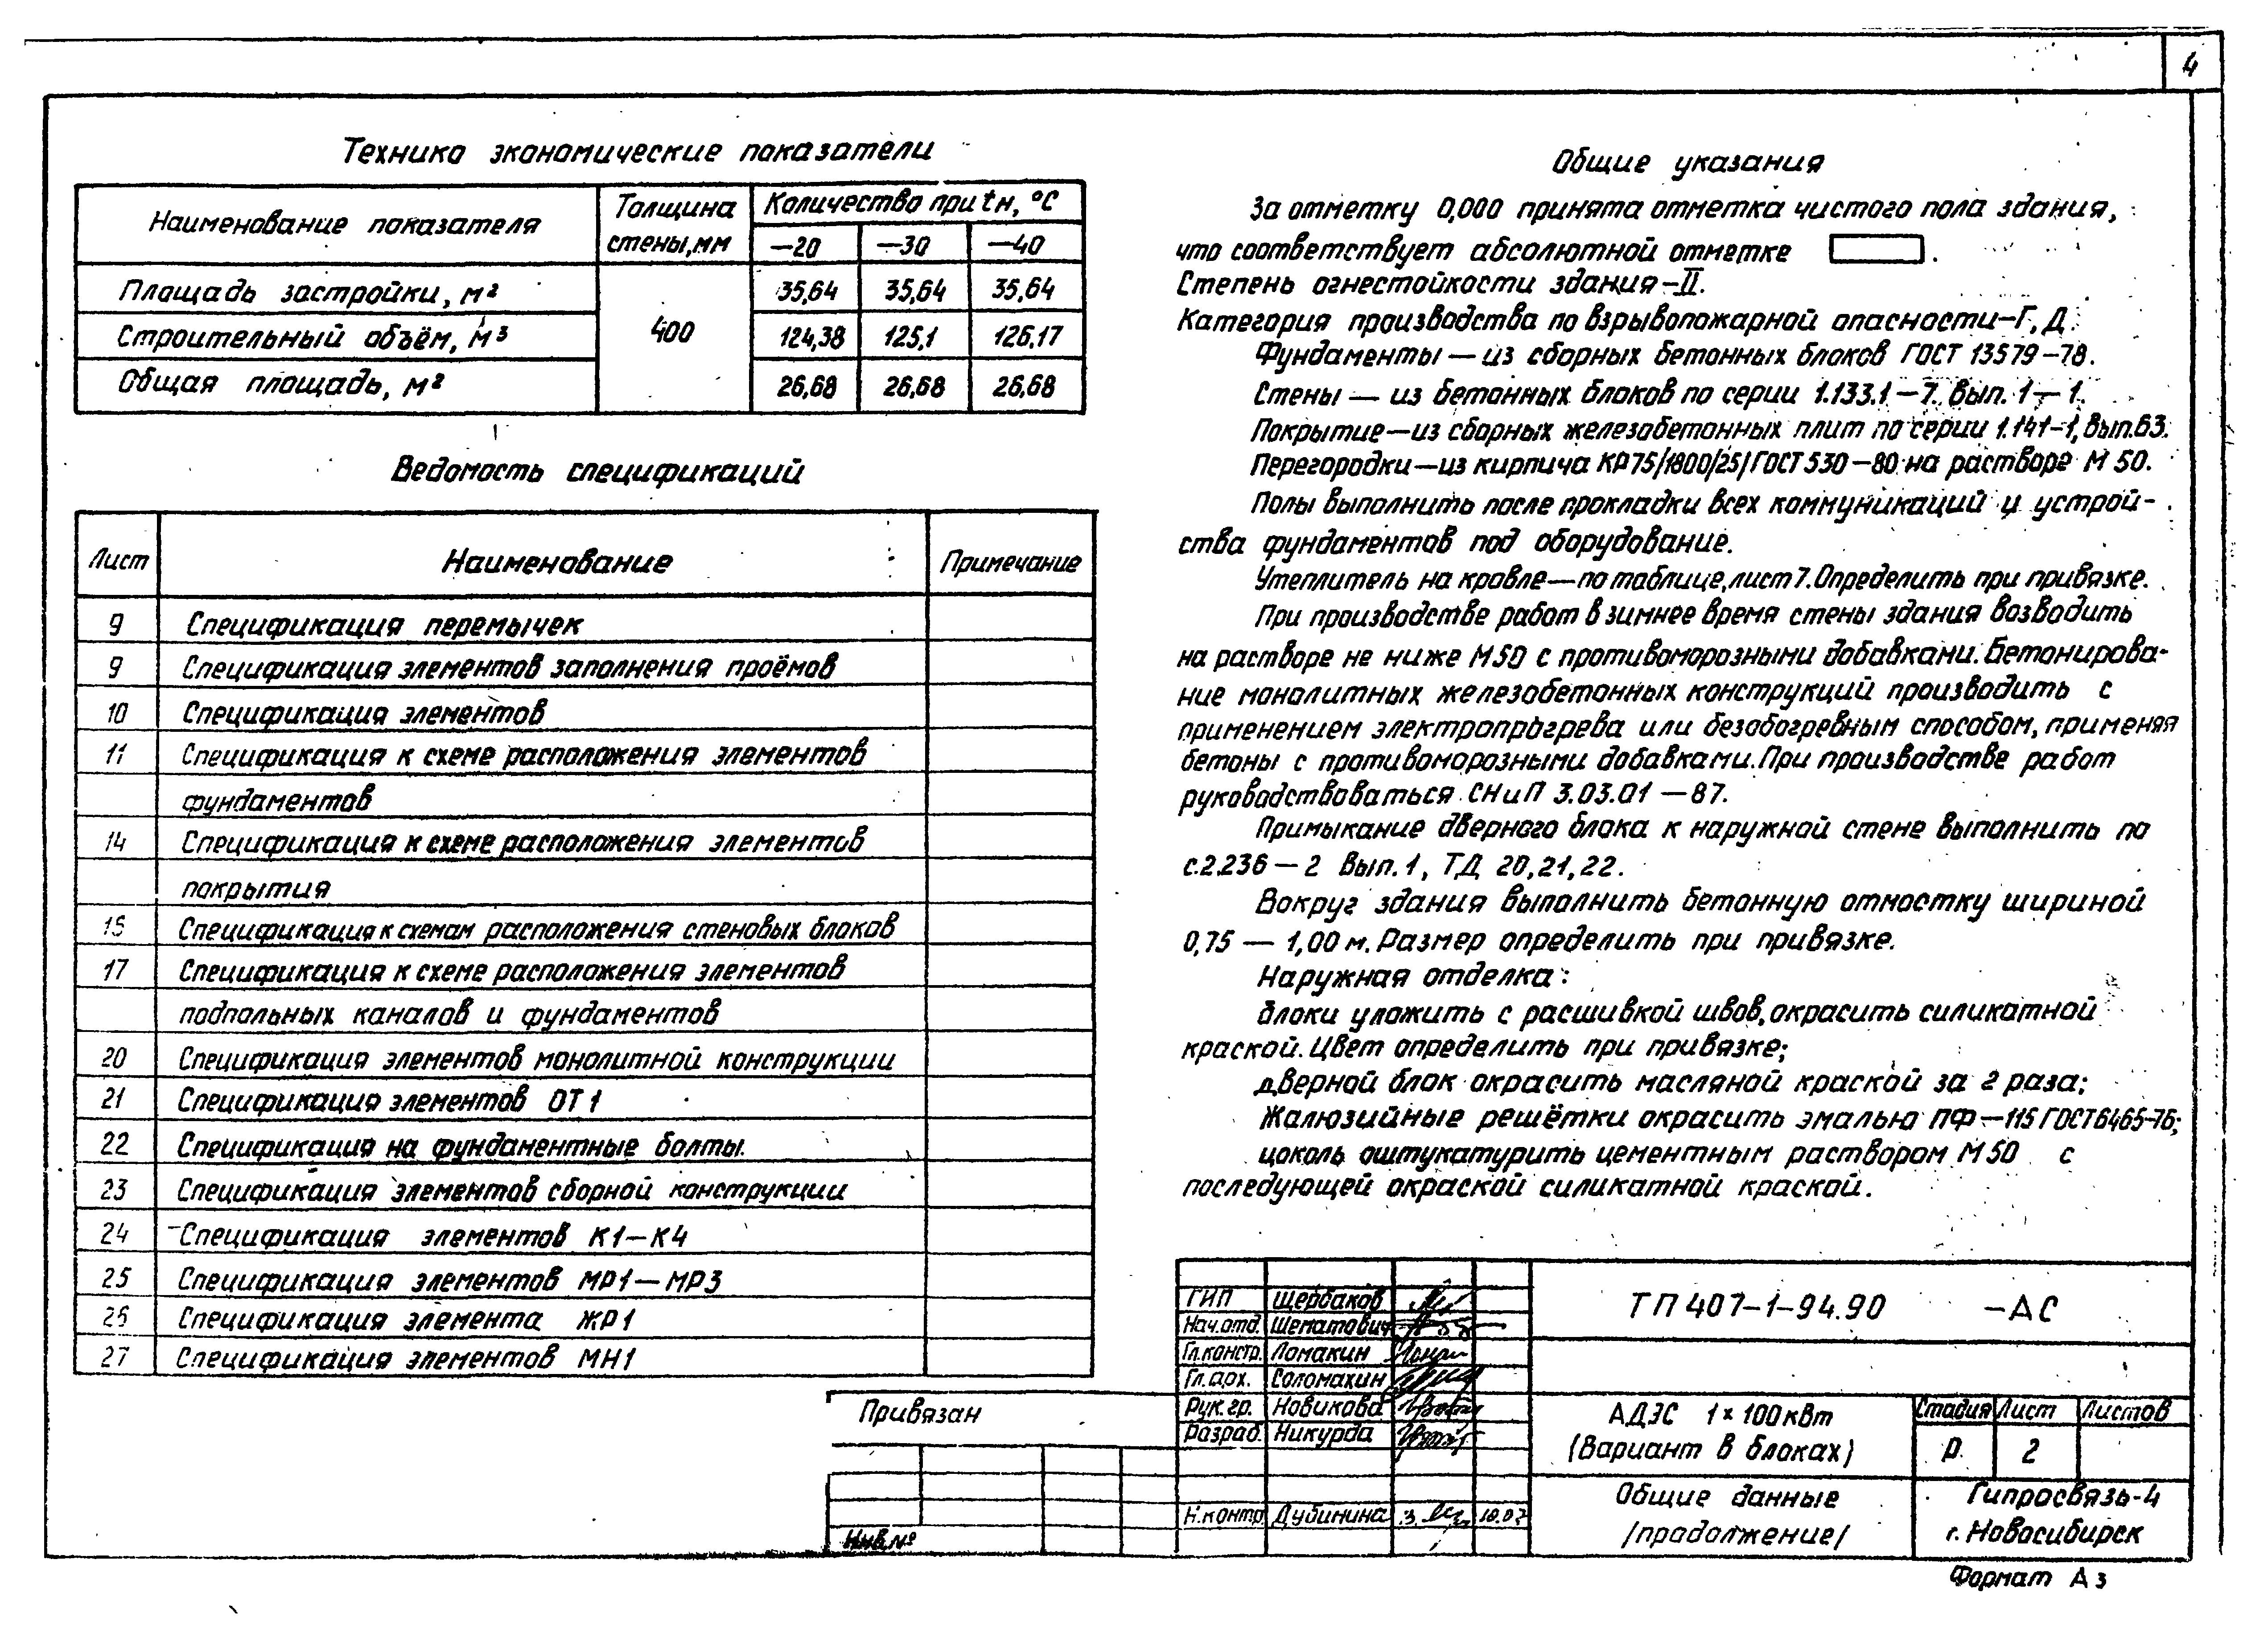 4
Технико экономические показатели
Наименование показателя
Толщина стены, мм
Количество при tн, °С
—20 —30 —40
Площадь застройки, м² 35,64 35,64 35,64
Строительный объём, м³ 400 124,38 125,1 126,17
Общая площадь, м² 26,68 26,68 26,68
Ведомость спецификаций
Лист Наименование Примечание
9 Спецификация перемычек
9 Спецификация элементов заполнения проёмов
10 Спецификация элементов
11 Спецификация к схеме расположения элементов
фундаментов
14 Спецификация к схеме расположения элементов
покрытия
15 Спецификация к схемам расположения стеновых блоков
17 Спецификация к схеме расположения элементов
подпольных каналов и фундаментов
20 Спецификация элементов монолитной конструкции
21 Спецификация элементов ОТ1
22 Спецификация на фундаментные болты.
23 Спецификация элементов сборной конструкции
24 Спецификация элементов К1—К4
25 Спецификация элементов МР1—МР3
26 Спецификация элемента ЖР1
27 Спецификация элементов МН1
Общие указания
За отметку 0,000 принята отметка чистого пола здания,
что соответствует абсолютной отметке .
Степень огнестойкости здания—II.
Категория производства по взрывопожарной опасности—Г, Д.
Фундаменты — из сборных бетонных блоков ГОСТ 13579—78.
Стены — из бетонных блоков по серии 1.133.1—7. Вып. 1—1.
Покрытие—из сборных железобетонных плит по серии 1.141-1, вып.63.
Перегородки—из кирпича КР75/1800/25/ГОСТ 530—80 на растворе М 50.
Полы выполнить после прокладки всех коммуникаций и устрой-
ства фундаментов под оборудование.
Утеплитель на кровле—по таблице, лист 7. Определить при привязке.
При производстве работ в зимнее время стены здания возводить
на растворе не ниже М50 с противоморозными добавками. Бетонирова-
ние монолитных железобетонных конструкций производить с
применением электропрогрева или безобогревным способом, применяя
бетоны с противоморозными добавками. При производстве работ
руководствоваться СНиП 3.03.01—87.
Примыкание дверного блока к наружной стене выполнить по
с.2.236—2 Вып. 1, ТД 20, 21, 22.
Вокруг здания выполнить бетонную отмостку шириной
0,75 — 1,00 м. Размер определить при привязке.
Наружная отделка:
блоки уложить с расшивкой швов, окрасить силикатной
краской. Цвет определить при привязке;
дверной блок окрасить масляной краской за 2 раза;
Жалюзийные решётки окрасить эмалью ПФ—115 ГОСТ 6465-76;
цоколь оштукатурить цементным раствором М 50 с
последующей окраской силикатной краской.
ГИП Щербаков
Нач.отд. Шематович
Гл.констр. Ломакин
Гл.арх. Соломахин
Рук.гр. Новикова
Разраб. Никурда
Н.контр. Дубинина
ТП 407-1-94.90 -АС
АДЭС 1×100кВт
(Вариант в блоках)
Стадия Лист Листов
Р 2
Общие данные
/продолжение/
Гипросвязь-4
г. Новосибирск
Привязан
Инв.№
Формат А3